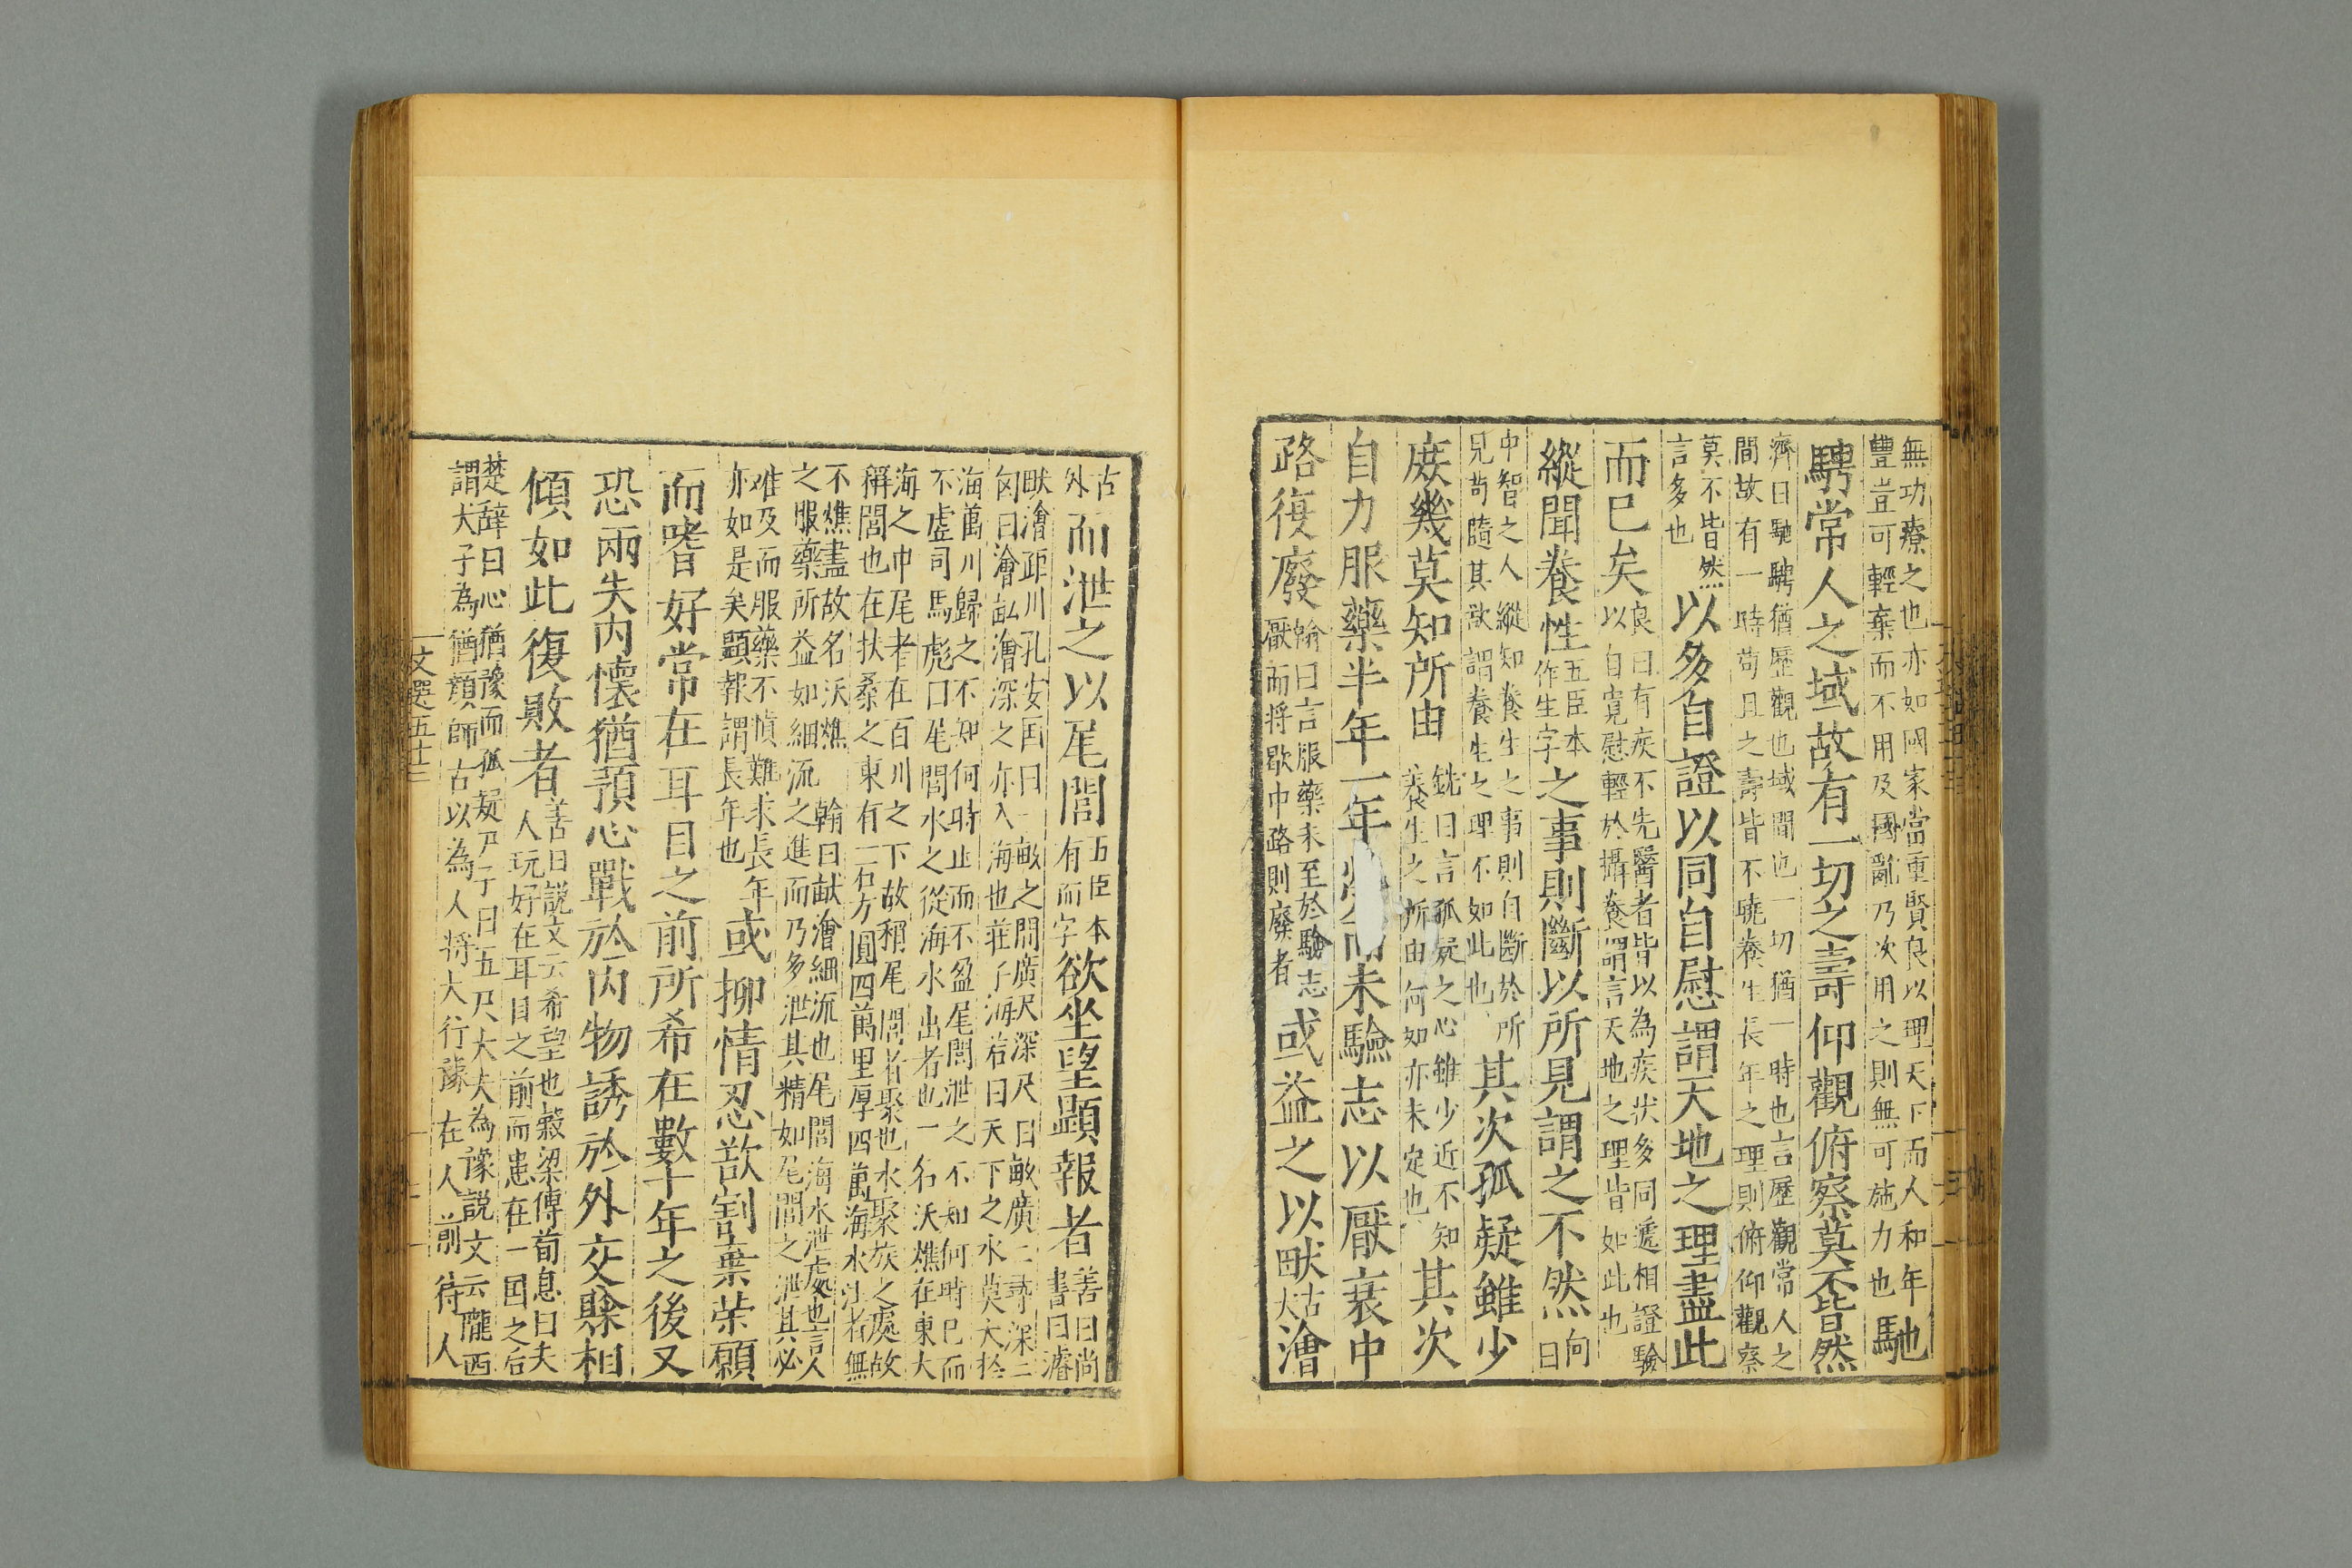 無功療之也亦如國家當重賢良以理天下而人和年
豐豈可輕棄而不用及國亂乃次用之則無可施力也馳
騁常人之域故有一切之壽仰觀俯察莫不皆然
濟曰馳騁猶歷觀也域間也一切猶一時也言歷觀常人之
間故有一時苟且之壽皆不曉養生長年之理則俯仰觀察
莫不皆然
言多也
以多自證以同自慰謂天地之理盡此
而已矣
良曰有疾不先醫者皆以為疾狀多同遞相證驗
以自寬慰輕於攝養謂言天地之理皆如此也
縱聞養性
五臣本
作生字
之事則斷以所見謂之不然
向
曰
中智之人縱知養生之事則自斷於所
見苟隨其欲謂養生之理不如此也
其次孤疑雖少
庶幾莫知所由
銑曰言孤疑之心雖少近不知
養生之所由何如亦未定也
其次
自力服藥半年一年而未驗志以厭衰中
路復廢
翰曰言服藥未至於驗志
厭而將歇中路則廢者
或益之以畎
古
犬
澮
古
外
而泄之以尾閭
五臣本
有而字
欲坐望顯報者
善曰尚
書曰濬
畎澮距川孔安國曰一畝之間廣尺深尺曰畎廣二尋深二
仞曰澮畎澮深之亦入海也莊子海若曰天下之水莫大於
海萬川歸之不知何時止而不盈尾閭泄之不知何時已而
不虛司馬彪曰尾閭水之從海水出者也一名沃燋在東大
海之中尾者在百川之下故稱尾閭者聚也水聚族之處故
稱閭也在扶桑之東有一石方圓四萬里厚四萬海水注者無
不燋盡故名沃燋翰曰畎澮細流也尾閭海水泄處也言人
之服藥所益如細流之進而乃多泄其精如尾閭之泄其必
难及而服藥不慎難求長年
亦如是矣顯報謂長年也
或抑情忍欲割棄荣願
而嗜好常在耳目之前所希在數十年之後又
恐兩失内懷猶預心戰於内物誘於外交賒相
傾如此復敗者
善曰說文云希望也穀梁傳荀息曰夫
人玩好在耳目之前而患在一國之后
楚辭曰心猶豫而狐疑尸子曰五尺大犬為豫說文云隴西
謂犬子為猶顏師古以為人將犬行豫在人前待人
文選五十三